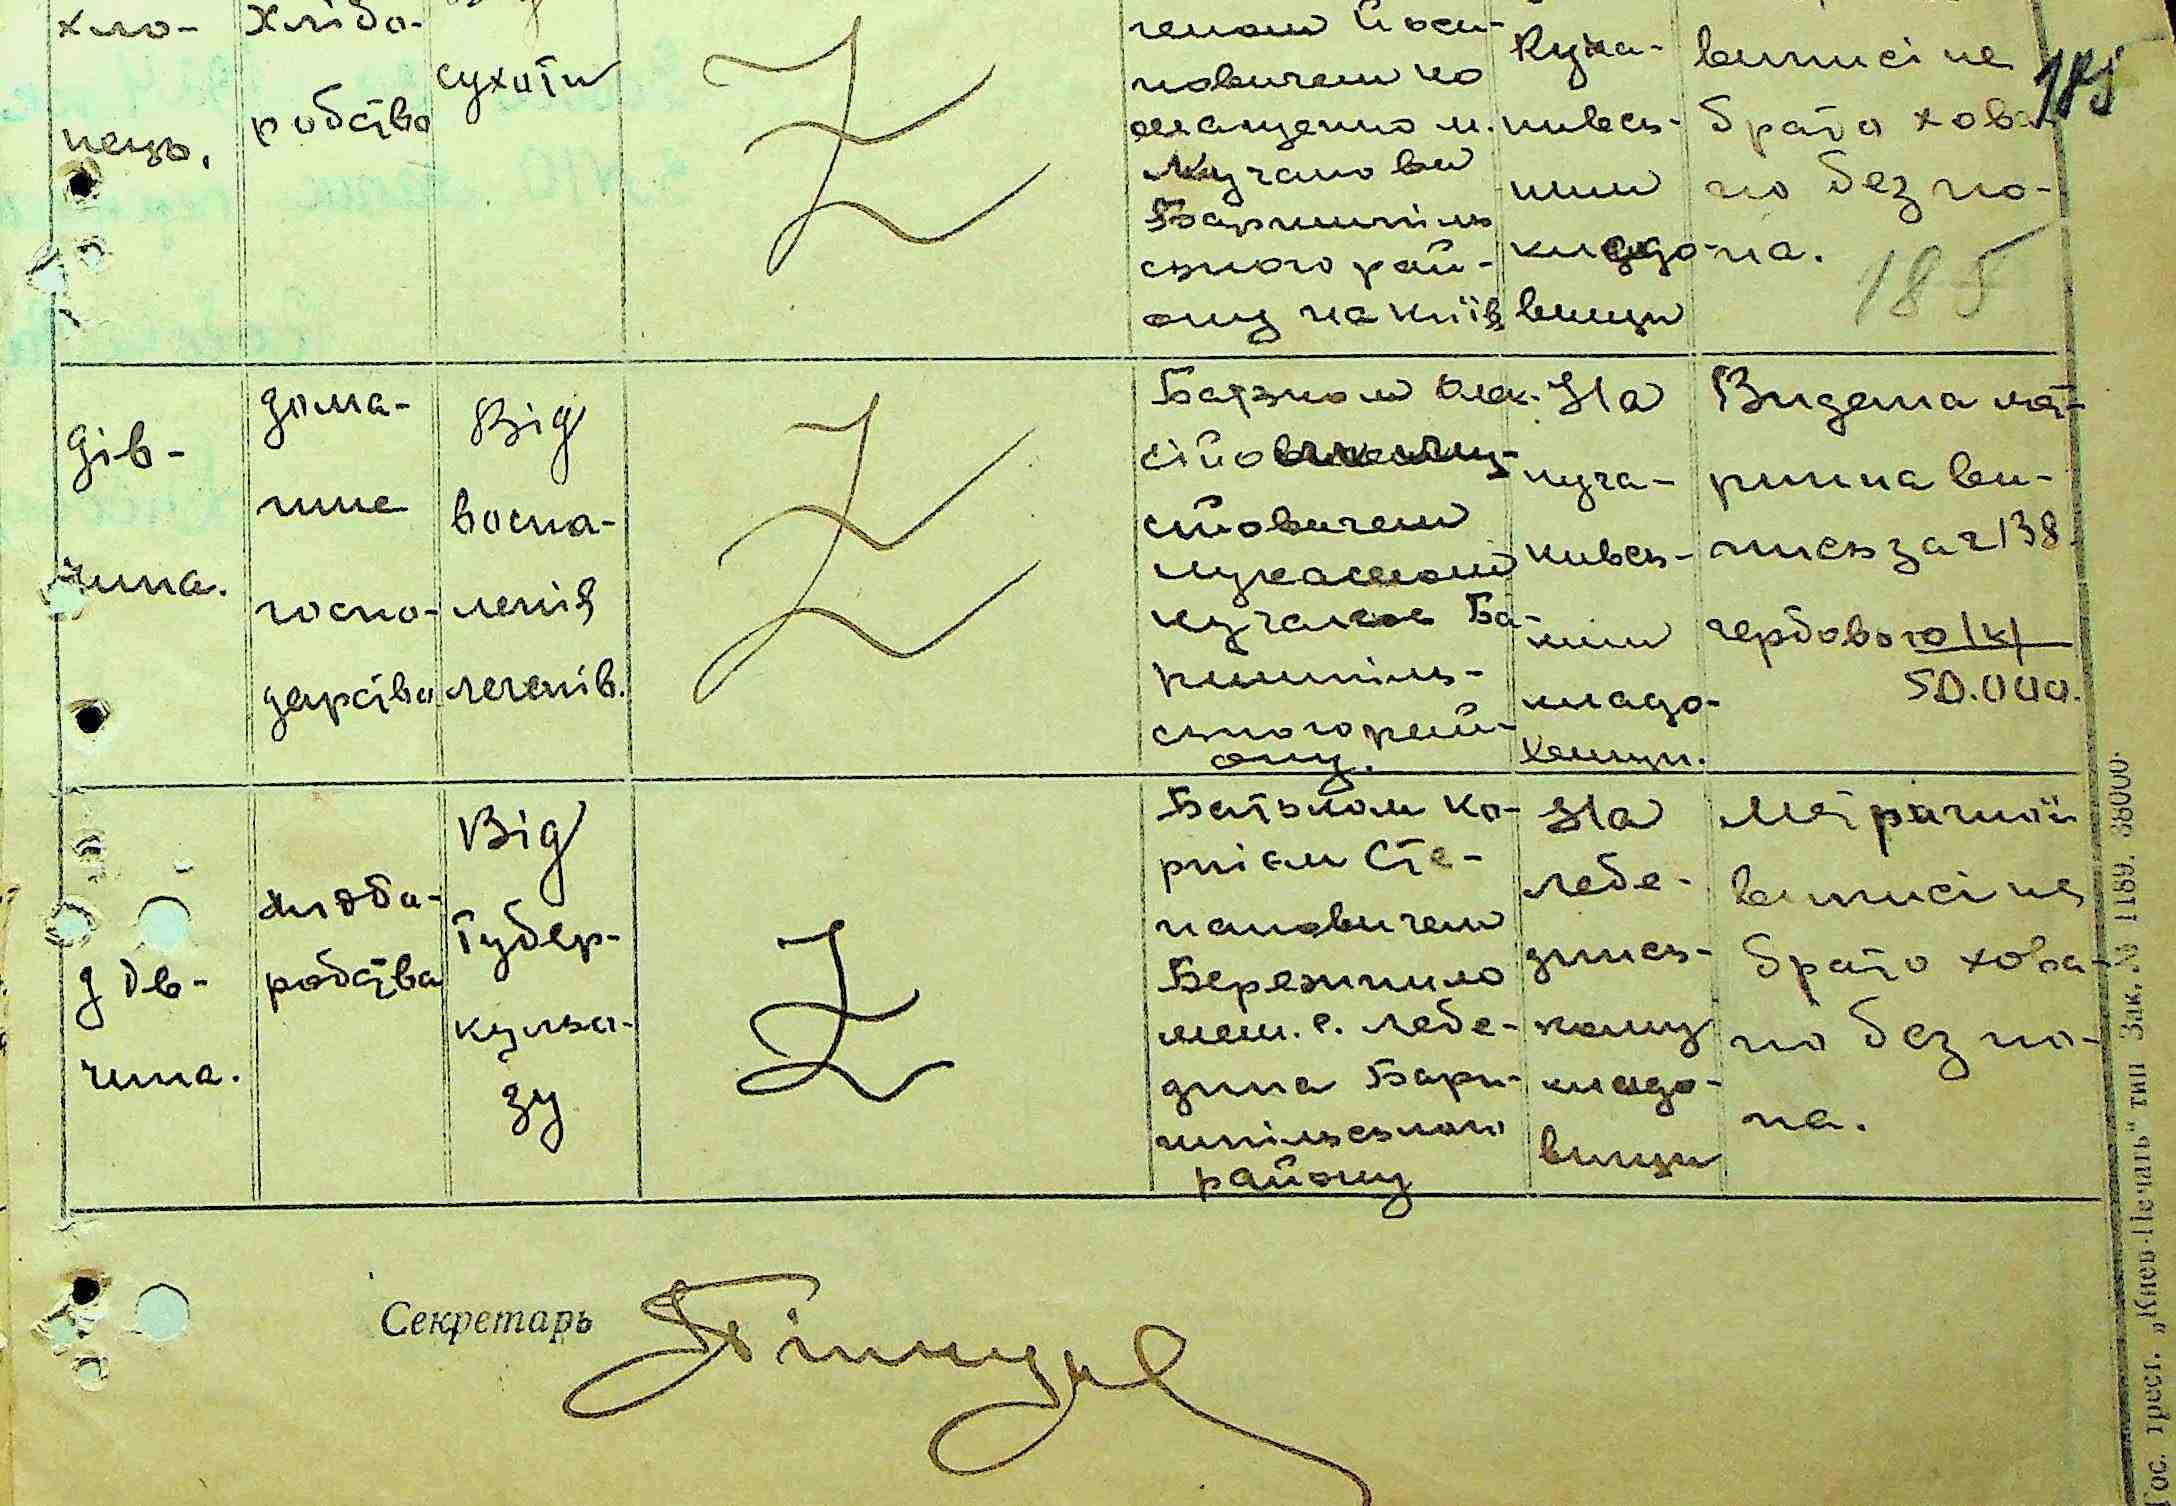 хло-
нець.
Хлібо-
робство
сухоти
ченом Йоси-
повичем
м.
Кучакови
Баришпіль
ського рай-
ону на Київ
Куча-
ківсь-
ким
кладо
вищи
виписі не
брато хова
но без по-
па.
185
185
Дів-
чина.
дома-
шнє
госпо-
дарство
Від
воспа-
ленія
легенів.
Батьком Олек-
ським
Кучаков Ба-
ришпіль-
ського рай-
ону.
На
куча-
ківсь-
кім
кладо-
вищи.
Видана мет-
рична ви-
пись за г 138.
чербового /к/
50.000.
дів-
чина.
хлібо-
робства
Від
Тубер-
кульо-
зу
Батьком Ко-
рнієм Сте-
пановичем
Бережнило
меш. с. Лебе-
дина Бари-
шпільського
району
На
лебе-
динсь-
кому
кладо-
вищи
Метричної
виписі не
брато хова-
но без по-
па.
Секретарь
Гос. трест. „Киев-Печать" тип Зак. № 1189. 38000.